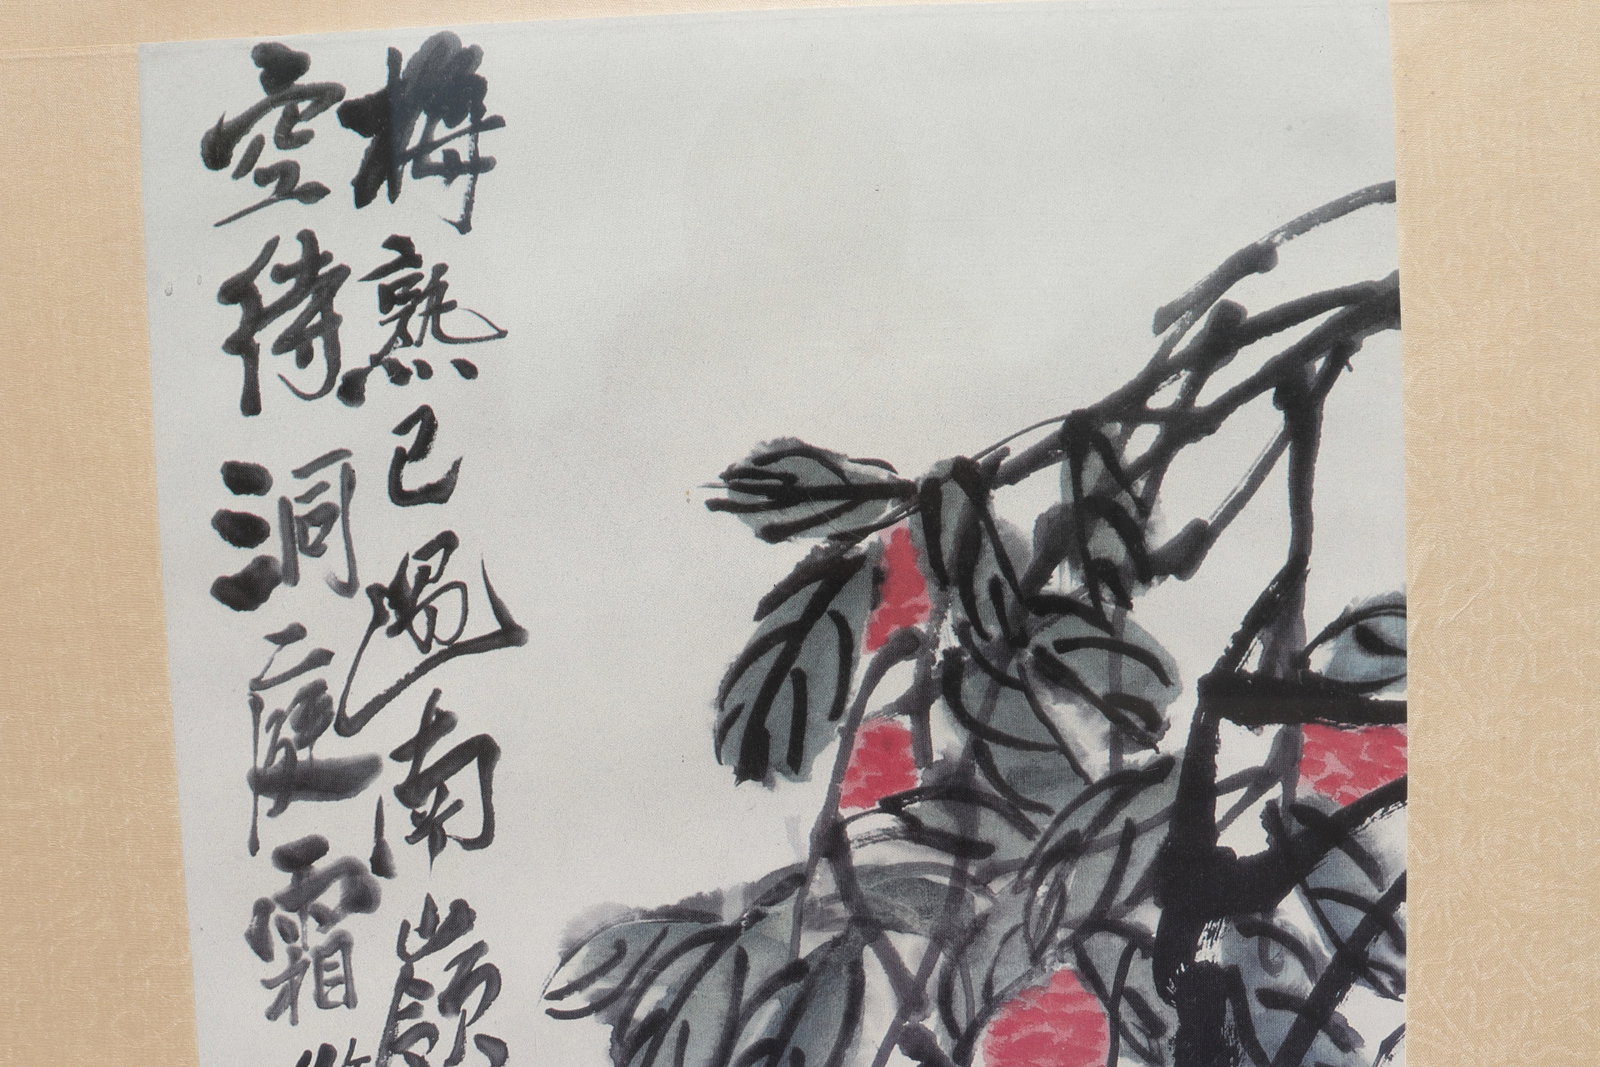 梅熟已過南嶺
空待洞庭霜